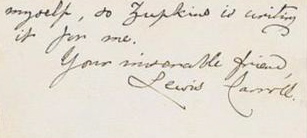 myself, so Zupkins is writing
it for me.
Your miserable friend,
Lewis Carroll.